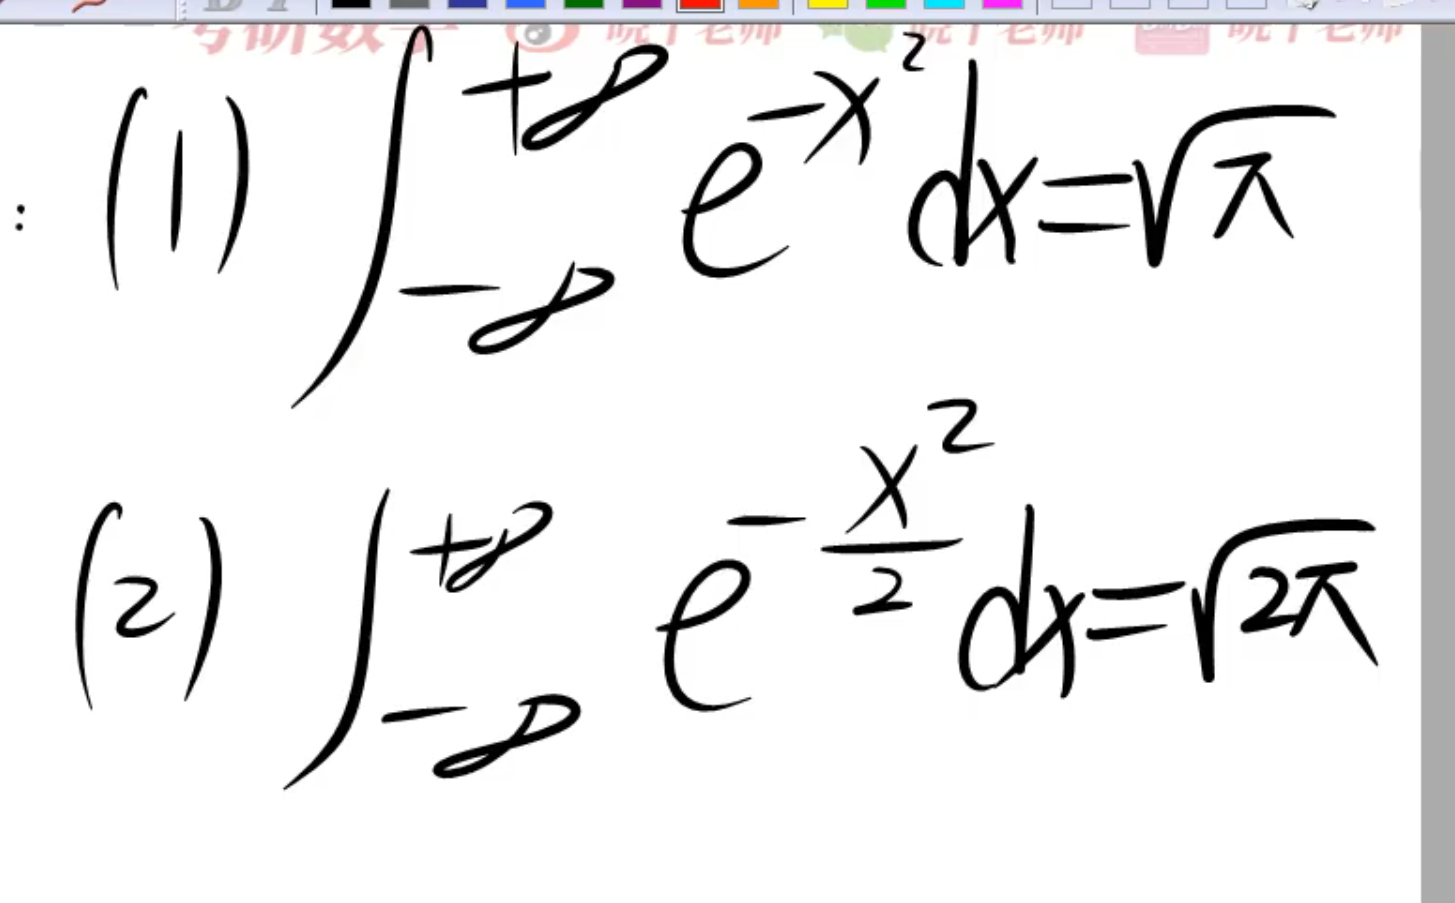 考研数学 晓千老师 晓千老师 晓千老师
: (1) ∫_{-∞}^{+∞} e^{-x^2} dx = √π
(2) ∫_{-∞}^{+∞} e^{-\frac{x^2}{2}} dx = √(2π)